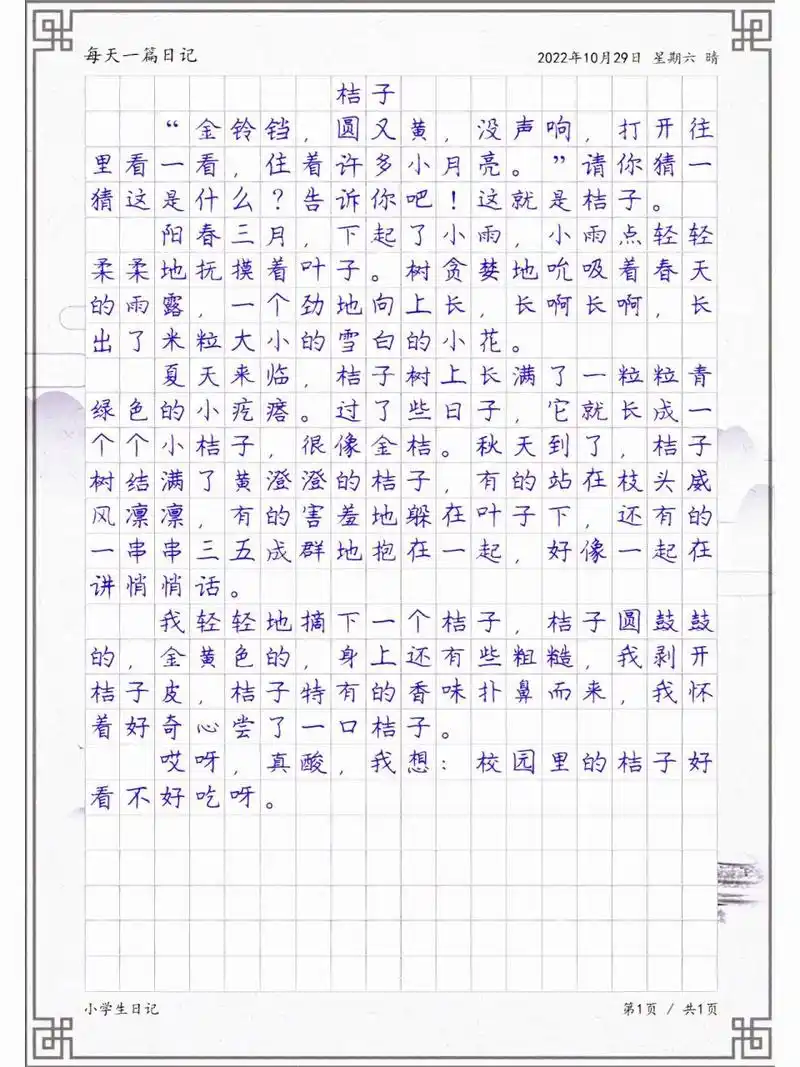 每天一篇日记
2022年10月29日 星期六 晴
桔子
“金铃铛，圆又黄，没声响，打开往
里看一看，住着许多小月亮。”请你猜一
猜这是什么？告诉你吧！这就是桔子。
阳春三月，下起了小雨，小雨点轻轻
柔柔地抚摸着叶子。树贪婪地吮吸着春天
的雨露，一个劲地向上长，长啊长啊，长
出了米粒大小的雪白的小花。
夏天来临，桔子树上长满了一粒粒青
绿色的小疙瘩。过了些日子，它就长成一
个个小桔子，很像金桔。秋天到了，桔子
树结满了黄澄澄的桔子，有的站在枝头威
风凛凛，有的害羞地躲在叶子下，还有的
一串串三五成群地抱在一起，好像一起在
讲悄悄话。
我轻轻地摘下一个桔子，桔子圆鼓鼓
的，金黄色的，身上还有些粗糙，我剥开
桔子皮，桔子特有的香味扑鼻而来，我怀
着好奇心尝了一口桔子。
哎呀，真酸，我想：校园里的桔子好
看不好吃呀。
小学生日记
第1页 / 共1页